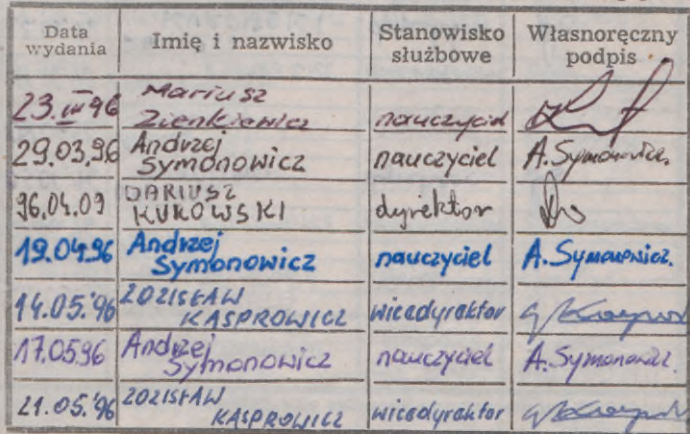 Data wydania
Imię i nazwisko
Stanowisko służbowe
Własnoręczny podpis
23.III 96 Mariusz Zienkiewicz nauczyciel
29.03.96 Andrzej Symonowicz nauczyciel A.Symonowicz.
96.04.09 DARIUSZ KUKOWSKI dyrektor
19.04.96 Andrzej Symonowicz nauczyciel A.Symonowicz.
14.05.'96 ZDZISŁAW KASPROWICZ wicedyrektor
17.05.96 Andrzej Symonowicz nauczyciel A.Symonowicz.
21.05.'96 ZDZISŁAW KASPROWICZ wicedyrektor